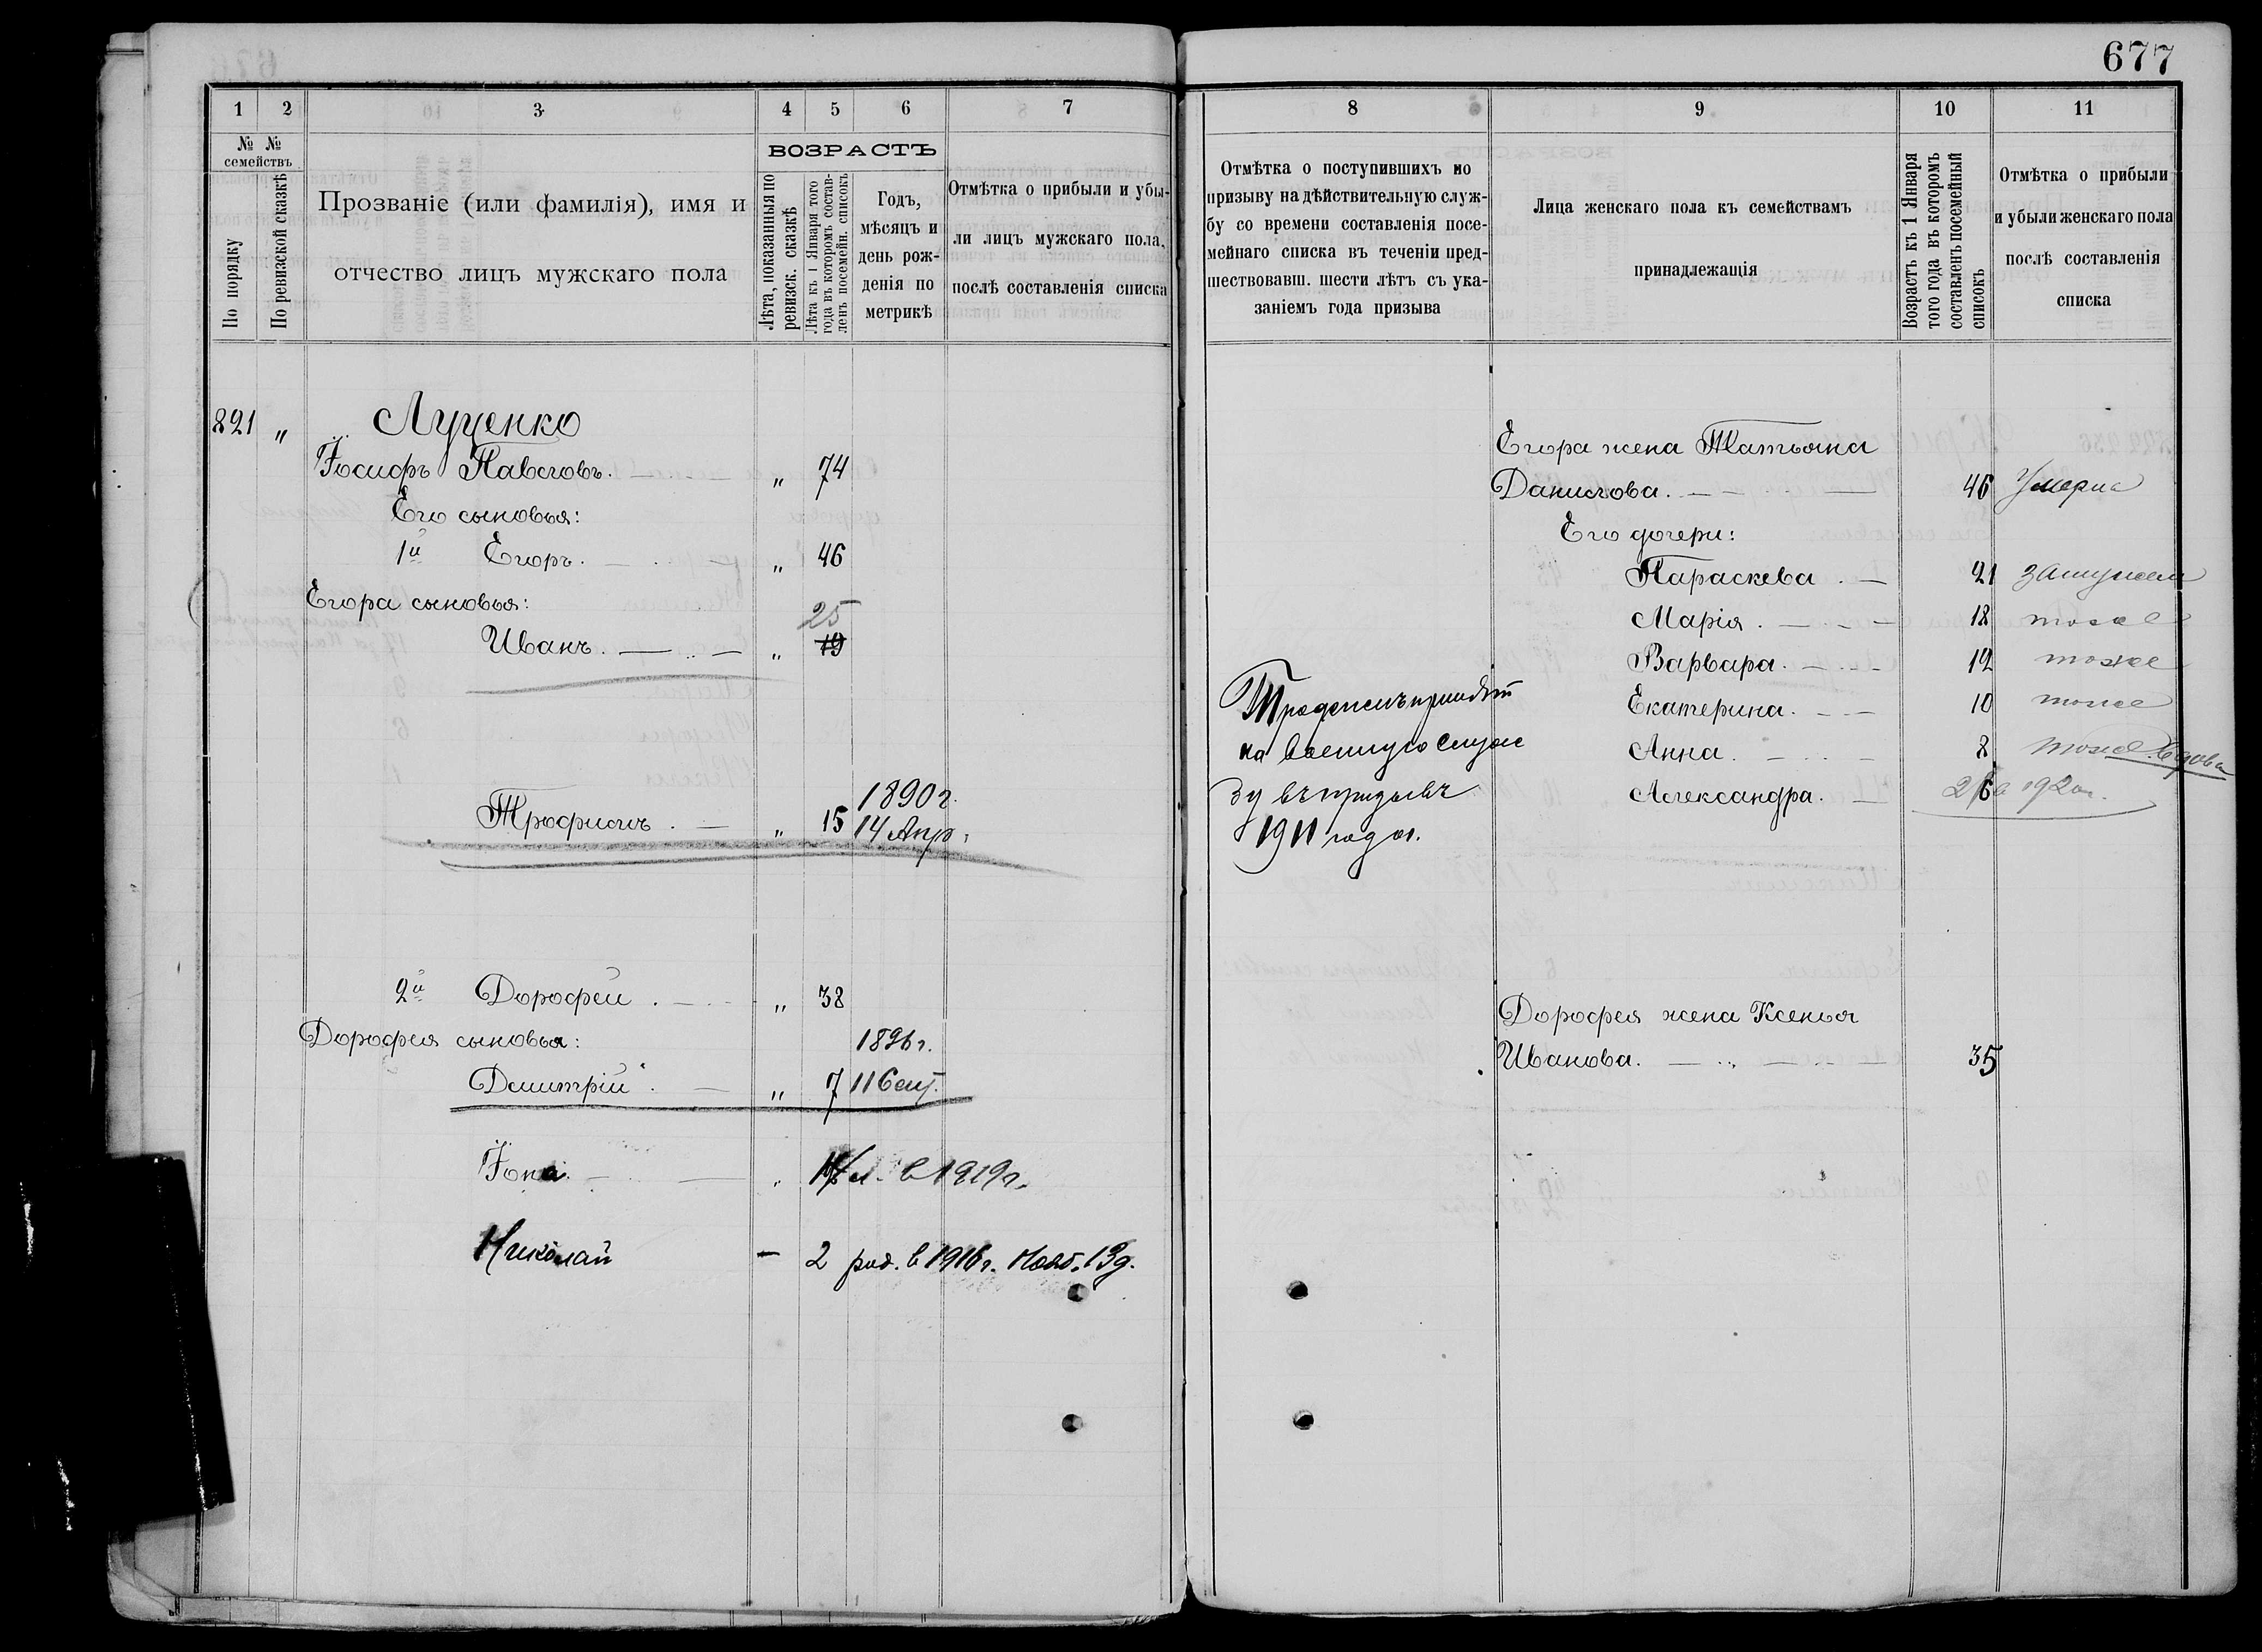 677
1 2 3 4 5 6 7
№ № семействъ
По порядку
По ревизской сказкѣ
Прозваніе (или фамилія), имя и
отчество лицъ мужскаго пола
ВОЗРАСТЪ
Лѣта, показанныя по
ревизск. сказкѣ
Лѣта къ 1 Января того
года въ которомъ состав-
ленъ посемейн. списокъ
Годъ,
мѣсяцъ и
день рож-
денія по
метрикѣ
Отмѣтка о прибыли и убы-
ли лицъ мужскаго пола,
послѣ составленія списка
821 " Луценко
Іосифъ Павловъ. " 74
Его сыновья:
1й Егоръ. " 46
Егора сыновья:
25
Иванъ. " 19
1890 г.
Трофимъ. " 15 14 Апр.
2й Дорофей. " 38
Дорофея сыновья: 1896 г.
Димитрій. " 7 11
Іона " в 1919 г.
Николай - 2 род. в 1916 г. Нояб. 13 д.
8 9 10 11
Отмѣтка о поступившихъ по
призыву на дѣйствительную служ-
бу со времени составленія посе-
мейнаго списка въ теченіи пред-
шествовавш. шести лѣтъ съ ука-
заніемъ года призыва
Лица женскаго пола къ семействамъ
принадлежащія
Возрастъ къ 1 Января
того года въ которомъ
составленъ посемейный
списокъ
Отмѣтка о прибыли
и убыли женскаго пола
послѣ составленія
списка
Егора жена Татьяна
Данилова. 46 Умерла
Его дочери:
Параскева. 21 замужем
Марія. 18 тоже
Варвара. 12 тоже
Екатерина. 10 тоже
Анна. 8 тоже
Александра. 6 1920 г.
Трофимъ принятъ
на военную служ
бу въ призывъ
1911 года.
Дорофея жена Ксенья
Иванова. 35